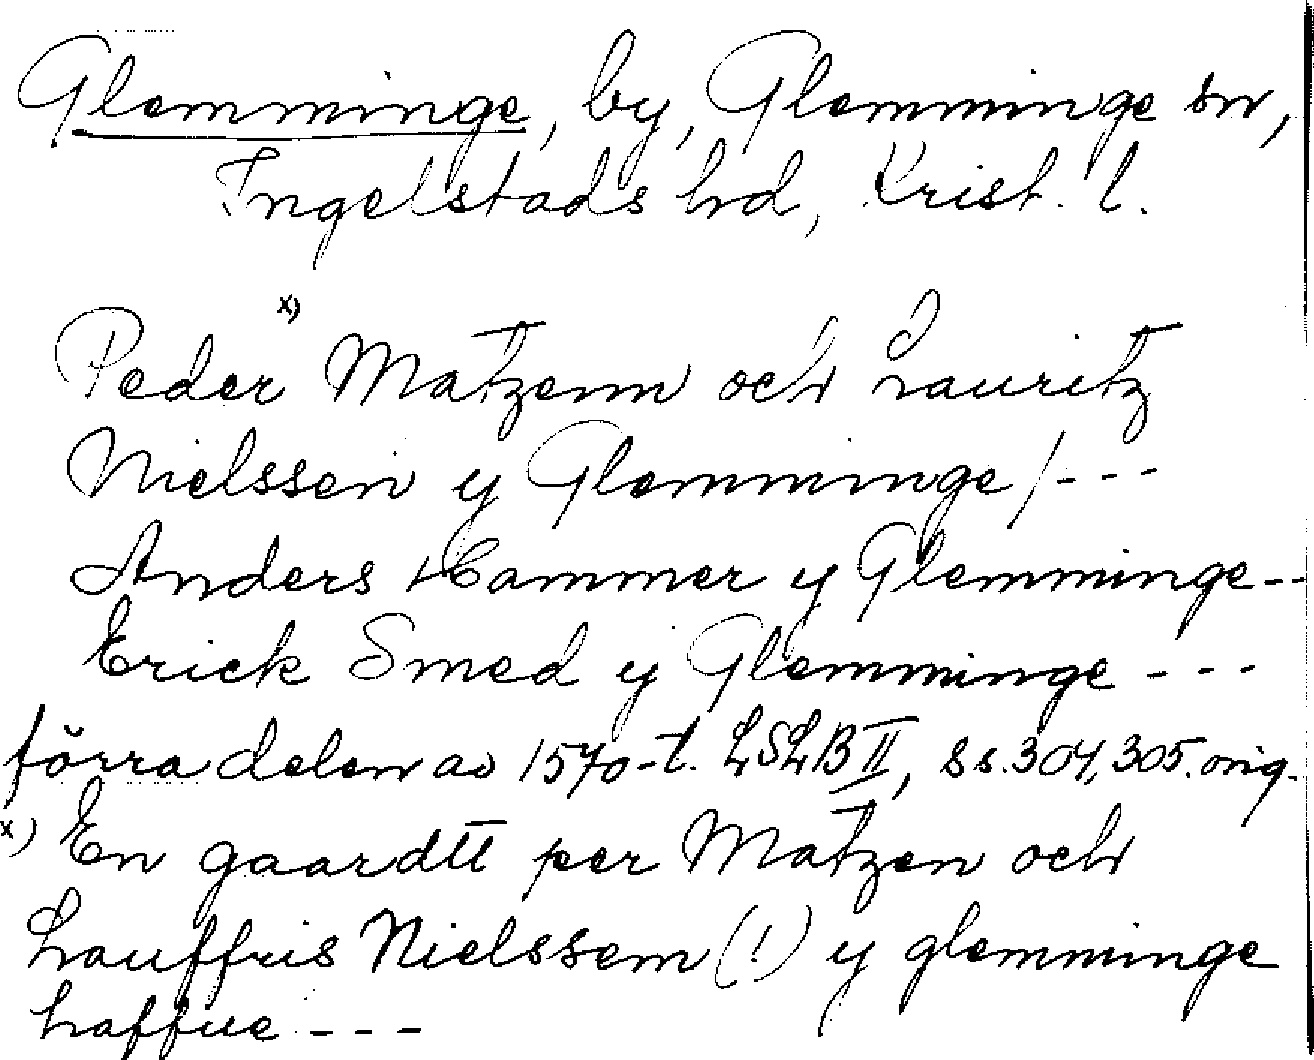 Glemminge, by, Glemminge sn,
Ingelstads hd, Krist. l.
x)
Peder Matzenn och Lauritz
Nielssen y Glemminge/---
Anders Hammer y Glemminge--
Erick Smed y Glemminge ---
förra delen av 1570-t. LSLB II, ss. 304, 305. orig.
x) En gaardtt per Matzen och
Lauffris Nielssem (!) y glemminge
haffue ---